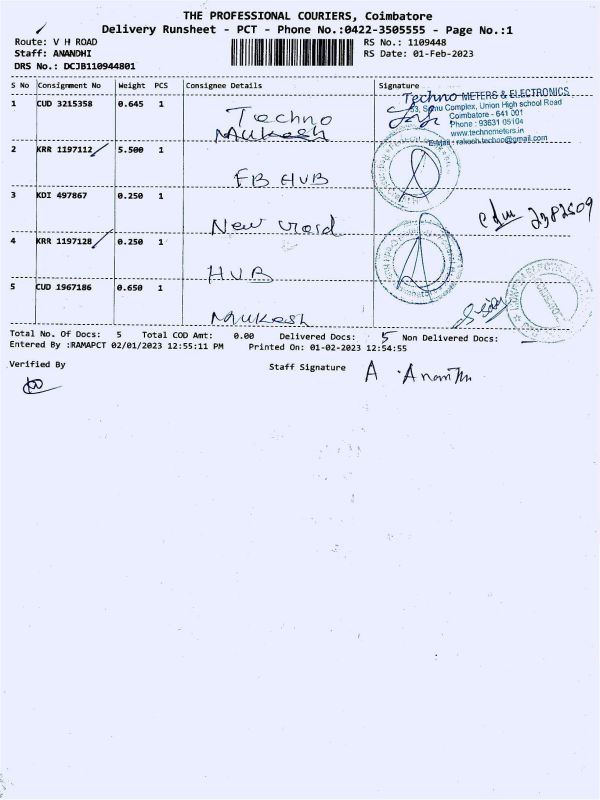 THE PROFESSIONAL COURIERS, Coimbatore
Delivery Runsheet - PCT - Phone No.:0422-3505555 - Page No.:1
Route: V H ROAD
RS No.: 1109448
Staff: ANANDHI
RS Date: 01-Feb-2023
DRS No.: DCJB110944801
S No Consignment No Weight PCS Consignee Details Signature
1 CUD 3215358 0.645 1 Techno
Mukesh
Techno METERS & ELECTRONICS
53, Somu Complex, Union High school Road
Coimbatore - 641 001
Phone : 93631 05104
www.technometers.in
2 KRR 1197112 5.500 1
FB HUB
3 KDI 497867 0.250 1
New
4 KRR 1197128 0.250 1
HUB
5 CUD 1967186 0.650 1
Mukesh
Total No. Of Docs: 5 Total COD Amt: 0.00 Delivered Docs: 5 Non Delivered Docs:
Entered By :RAMAPCT 02/01/2023 12:55:11 PM Printed On: 01-02-2023 12:54:55
Verified By
Staff Signature A